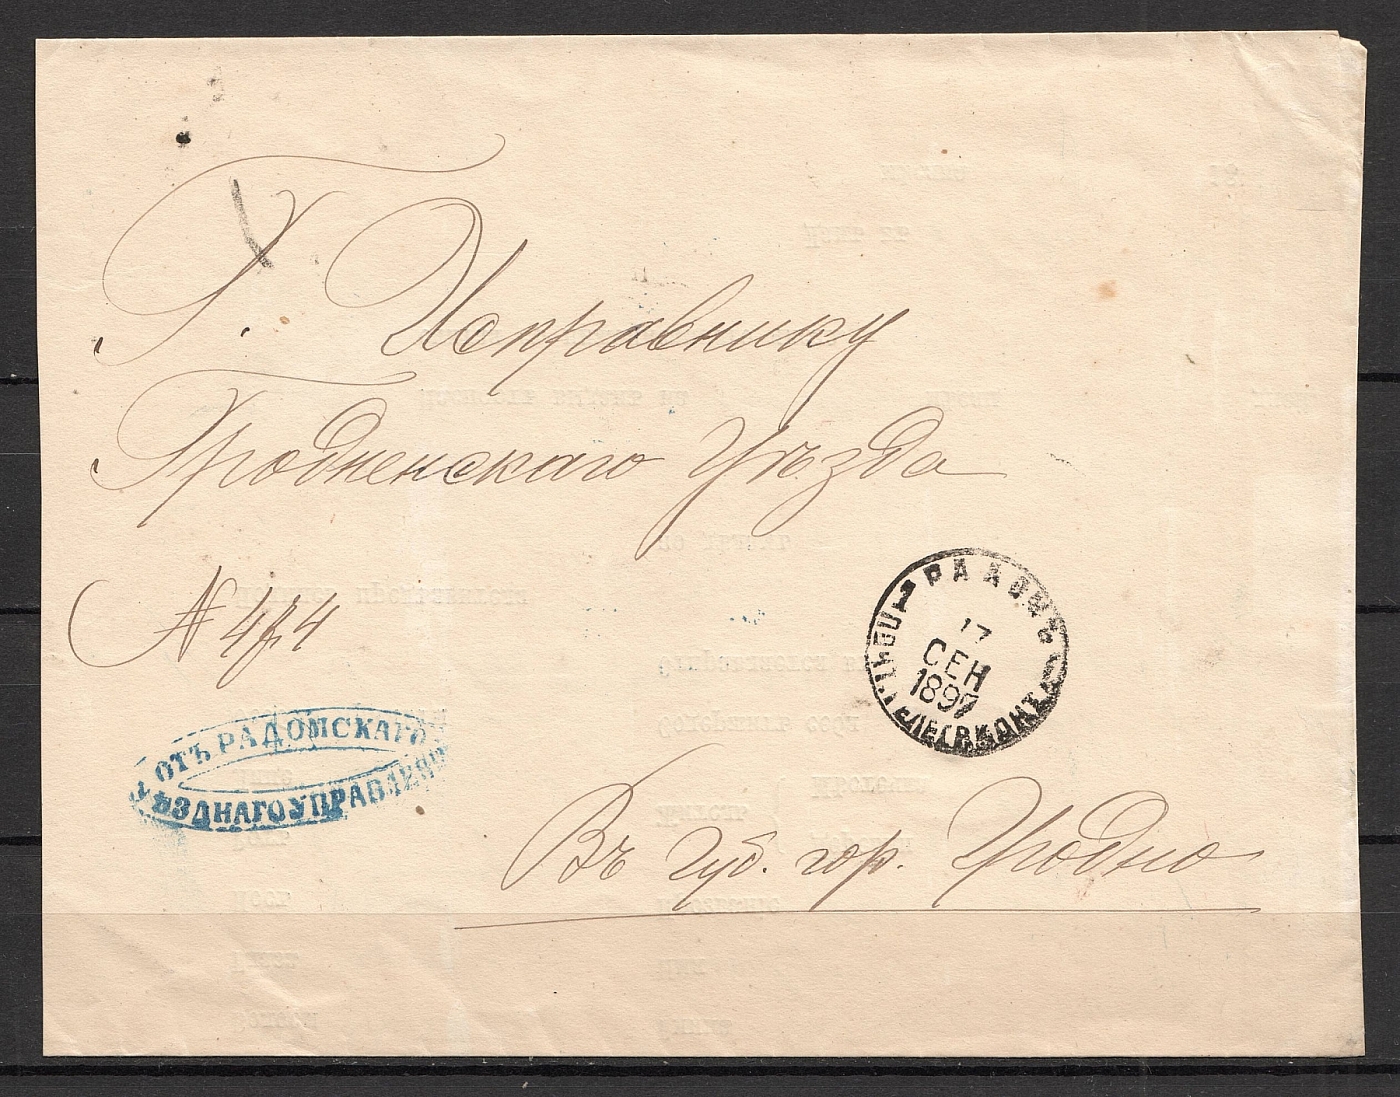 Г. Исправнику
Гродненскаго Уѣзда
РАДОМЪ
17
СЕН
1897
ПОЧТ. ТЕЛЕГР. КОНТ.
№ 484
ОТЪ РАДОМСКАГО
УѢЗДНАГО УПРАВЛЕНІЯ
Въ губ. гор. Гродно